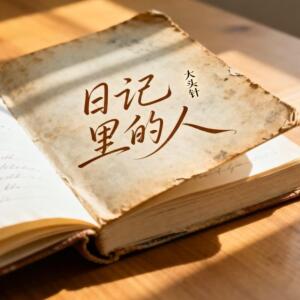 日记
里的人
大头针